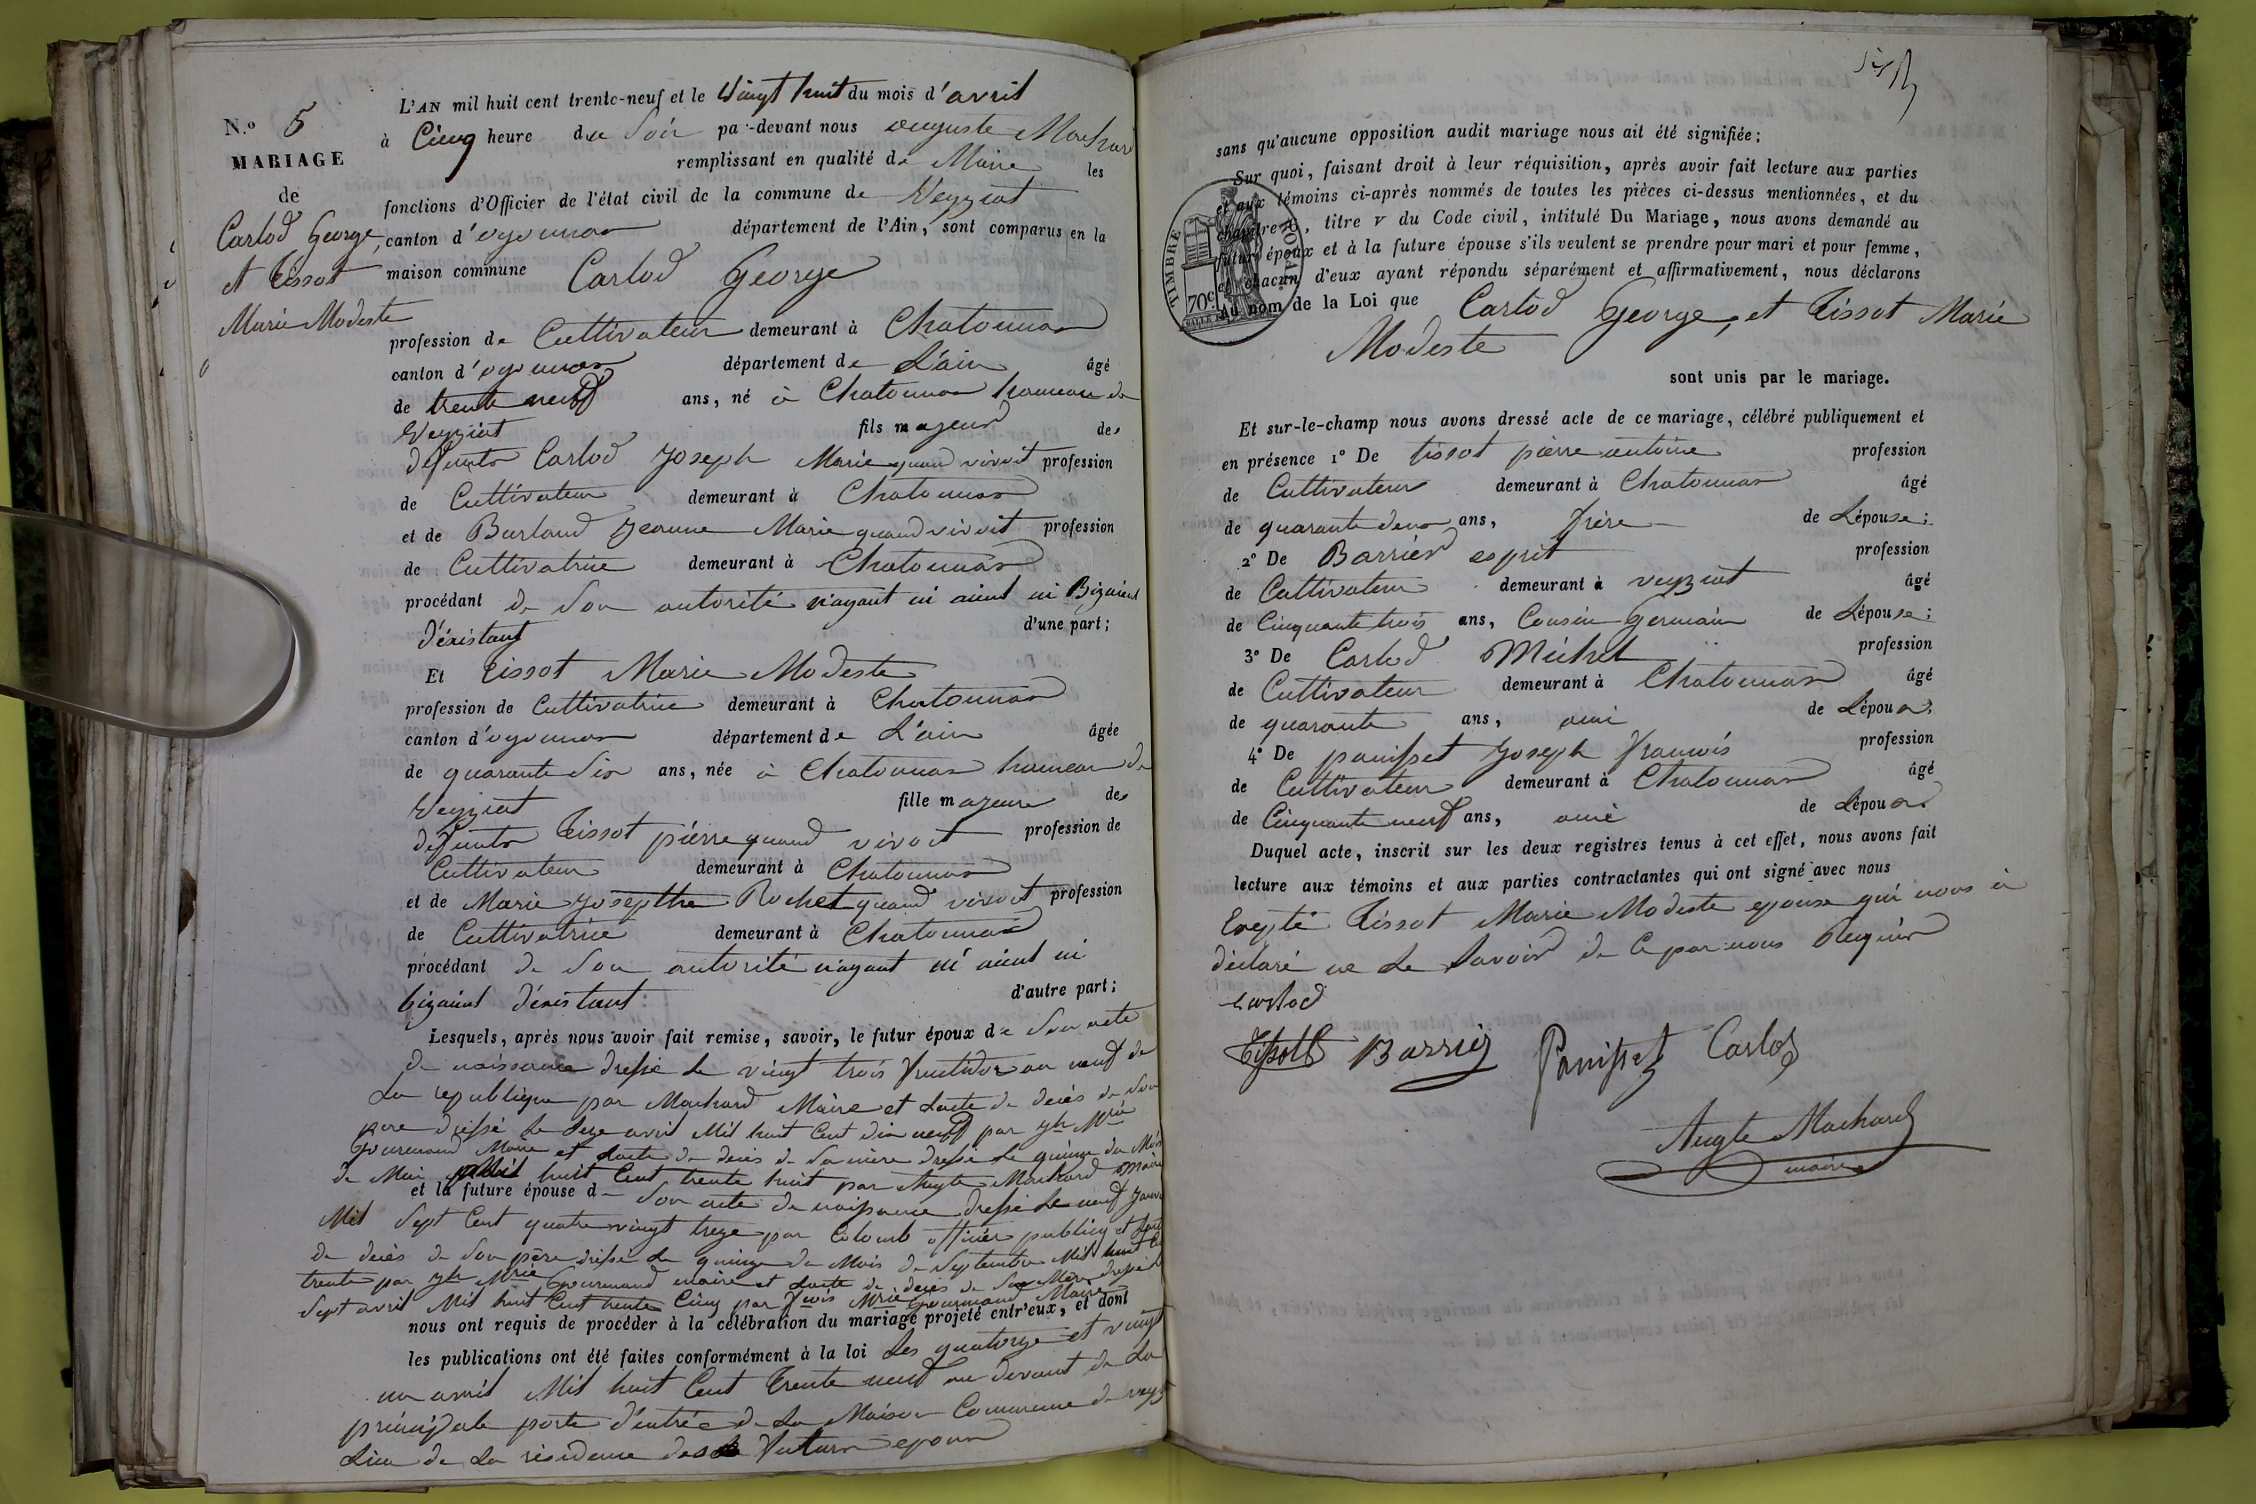 N.º 5
MARIAGE
de
Carlod George,
et Tissot
Marie Modeste
L'AN mil huit cent trente-neuf et le Vingt huit du mois d'avril
à Cinq heure du Soir par-devant nous auguste Machard
remplissant en qualité de Maire les
fonctions d'Officier de l'état civil de la commune de Veyziat
canton d'oyonnax département de l'Ain, sont comparus en la
maison commune Carlod George
profession de Cultivateur demeurant à Chatonnax
canton d'oyonnax département de L'ain âgé
de trente neuf ans, né à Chatonnax hameau de
Veyziat fils majeur des
defunts Carlod Joseph Marie quand vivoit profession
de Cultivateur demeurant à Chatonnax
et de Burland Jeanne Marie quand vivoit profession
de Cultivatrice demeurant à Chatonnax
procédant de Son autorité n'ayant ni aieul ni Bizaieul
d'éxistant d'une part;
Et Tissot Marie Modeste
profession de Cultivatrice demeurant à Chatonnax
canton d'oyonnax département de L'ain âgée
de quarante Six ans, née à Chatonnax hameau de
Veyziat fille majeure des
defunts Tissot pierre quand vivoit profession de
Cultivateur demeurant à Chatonnax
et de Marie Josepthe Rochet quand vivoit profession
de Cultivatrice demeurant à Chatonnax
procédant de Son autorité n'ayant ni aieul ni
bizaieul d'éxistant d'autre part;
Lesquels, après nous avoir fait remise, savoir, le futur époux de Son acte
de naissance dressé le vingt trois Fructidor an neuf de
La république par Machard Maire et Lacte de décès de Son
pere dressé Le Seize avril Mil huit Cent dix neuf par Jh Mrie
Gourmand Maire et Lacte de décès de Sa mère dressé Le quinze du Mois
de Mai Mil huit Cent trente huit par Augte Machard Maire
et la future épouse de Son acte de naissance dressé Le neuf Janvi
Mil Sept Cent quatre vingt treze par Colomb officier public et Lacte
de décès de Son père dressé Le quinze du Mois de Septembre Mil huit C
trente par Jh Mrie Gourmand maire et Lacte de décès de Sa Mère dressé le
Sept avril Mil huit Cent trente Cinq par Fcois Mrie Gourmand Maire
nous ont requis de procéder à la célébration du mariage projeté entr'eux, et dont
les publications ont été faites conformément à la loi Les quatorze et vingt
un avril Mil huit Cent Trente neuf au devant de La
principale porte d'entrée de La Maison Commune de veyz
Lieu de La résidence des Futurs époux
sans qu'aucune opposition audit mariage nous ait été signifiée;
Sur quoi, faisant droit à leur réquisition, après avoir fait lecture aux parties
et aux témoins ci-après nommés de toutes les pièces ci-dessus mentionnées, et du
chapitre VI, titre V du Code civil, intitulé Du Mariage, nous avons demandé au
futur époux et à la future épouse s'ils veulent se prendre pour mari et pour femme,
et chacun d'eux ayant répondu séparément et affirmativement, nous déclarons
Au nom de la Loi que Carlod George, et Tissot Marie
Modeste
TIMBRE ROYAL
70c
sont unis par le mariage.
Et sur-le-champ nous avons dressé acte de ce mariage, célébré publiquement et
en présence 1º De tissot pierre antoine profession
de Cultivateur demeurant à Chatonnax âgé
de quarante deux ans, frère de Lépouse;
2º De Barrier esprit profession
de Cultivateur demeurant à veyziat âgé
de Cinquante trois ans, Cousin Germain de Lépouse;
3º De Carlod Michel profession
de Cultivateur demeurant à Chatonnax âgé
de quarante ans, ami de Lépoux;
4º De panisset Joseph François profession
de Cultivateur demeurant à Chatonnax âgé
de Cinquante neuf ans, ami de Lépoux.
Duquel acte, inscrit sur les deux registres tenus à cet effet, nous avons fait
lecture aux témoins et aux parties contractantes qui ont signé avec nous
Exepté Tissot Marie Modeste epouse qui nous à
déclaré ne Le Savoir de Ce par nous Requis
carlod
Tissott Barrier Panisset Carlod
Augte Machard
maire